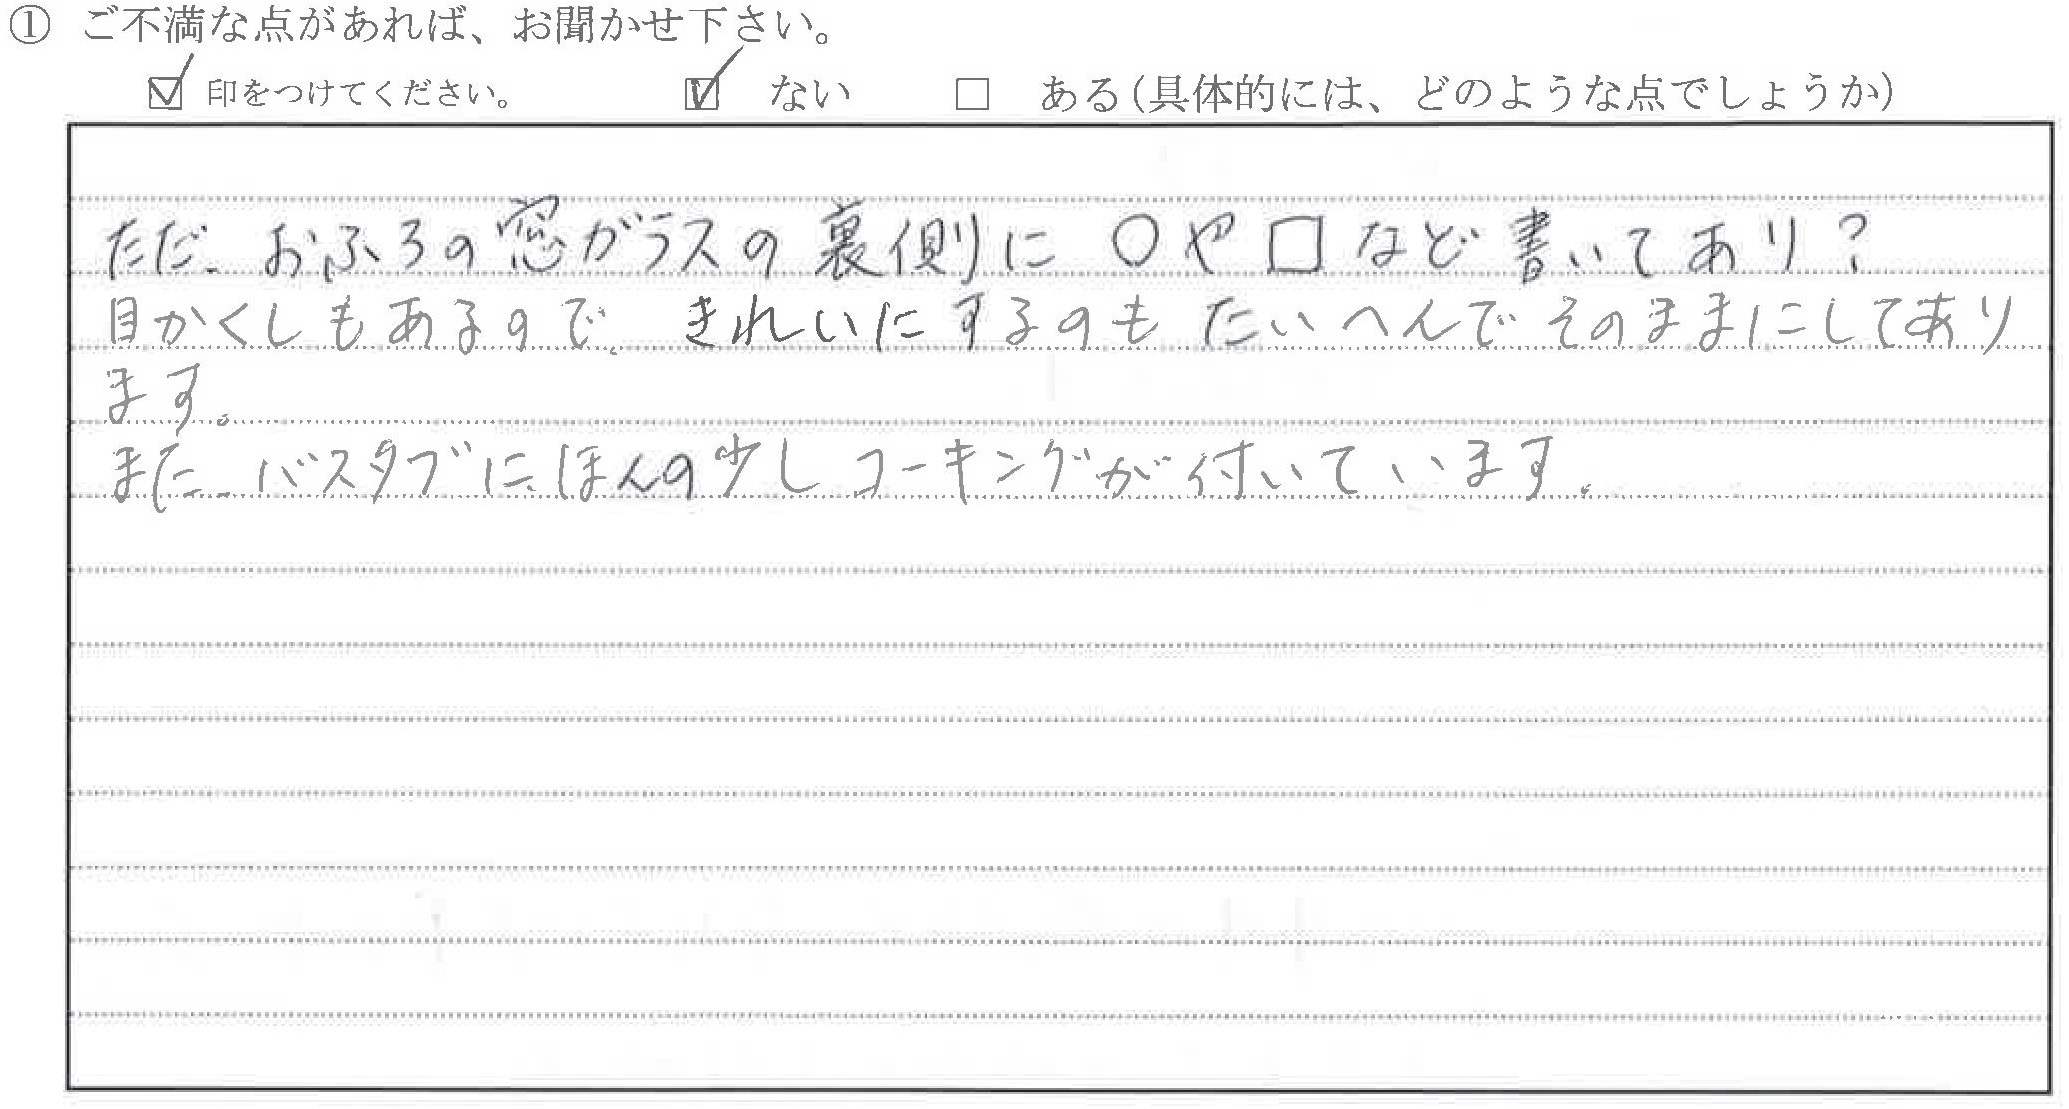 ① ご不満な点があれば、お聞かせ下さい。
☑ 印をつけてください。 ☑ ない □ ある(具体的には、どのような点でしょうか)
ただ、おふろの窓ガラスの裏側に ○や□など書いてあり？
目かくしもあるので、きれいにするのもたいへんでそのままにしてあり
ます。
また、バスタブにほんの少しコーキングが付いています。